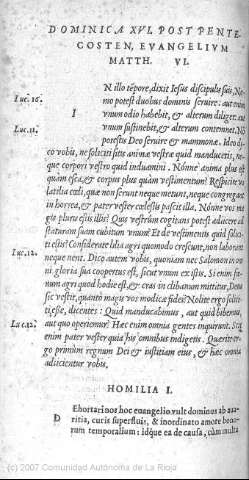 DOMINICA XVI. POST PENTE
COSTEN, EVANGELIVM
MATTH. VI.
N illo tẽpore, dixit Iesus discipulis suis, Ne
Luc. 16. mo potest duobus dominis seruire: aut enim
I vnum odio habebit, & alterum diliget: aut
Luc. 12. vnum sustinebit, & alterum contemnet. Nõ
potestis Deo seruire & mammonæ. Ideo di
co vobis, ne soliciti sitis animæ vestræ quid manducetis, ne
que corpori vestro quid induamini. Nõnne anima plus est
quàm esca, & corpus plus quàm vestimentum? Respicite vo
latilia cœli, quæ non serunt neque metunt, neque congregant
in horrea, & pater vester cœlestis pascit illa. Nõnne vos ma
gis pluris estis illis? Quis vestrûm cogitans potest adiicere ad
staturam suam cubitum vnum? Et de vestimento quid solici
ti estis? Considerate lilia agri quomodo crescunt, non laborant
Luc. 12. neque nent. Dico autem vobis, quoniam nec Salomon in om
ni gloria sua coopertus est, sicut vnum ex istis. Si enim fœ
num agri quod hodie est, & cras in clibanum mittitur, Deus
sic vestit, quantò magis vos modicæ fidei? Nolite ergo solici
ti esse, dicentes: Quid manducabimus, aut quid bibemus,
Luc. 12. aut quo operiemur? Hæc enim omnia gentes inquirunt. Scit
enim pater vester quia his omnibus indigetis. Quærite er
go primùm regnum Dei & iustitiam eius, & hæc omnia
adiicientur vobis.
HOMILIA I.
D Ehortari nos hoc euangelio vult dominus ab aua
ritia, curis superfluis, & inordinato amore bono
rum temporalium: idque ea de causa, cùm multa
(c) 2007 Comunidad Autónoma de La Rioja